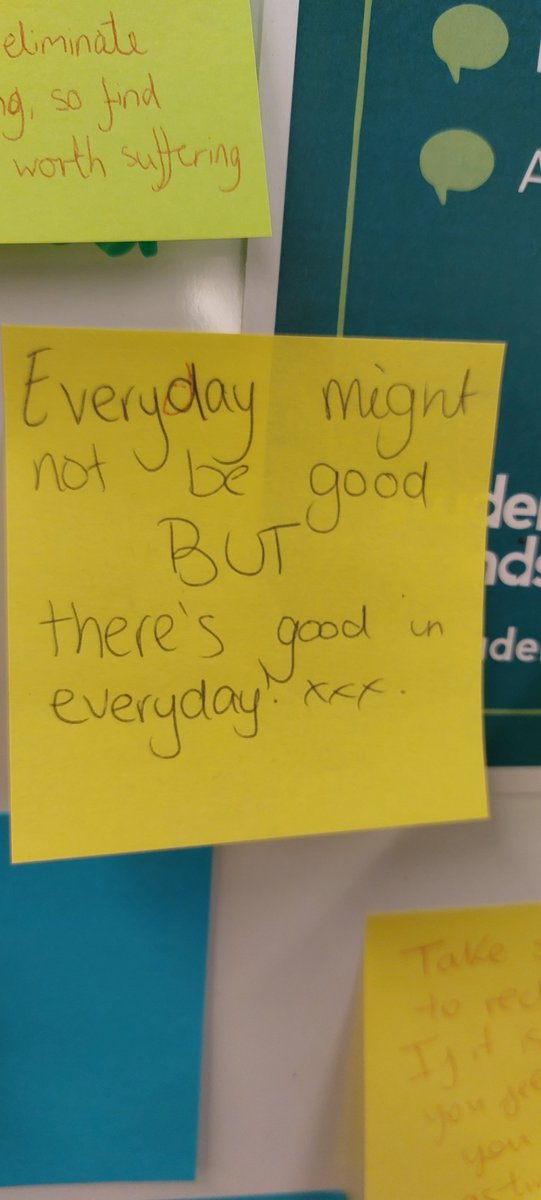 eliminate
so find
worth suffering
Everyday might
not be good
BUT
there's good in
everyday! xxx.
Take
to
If it
you
you